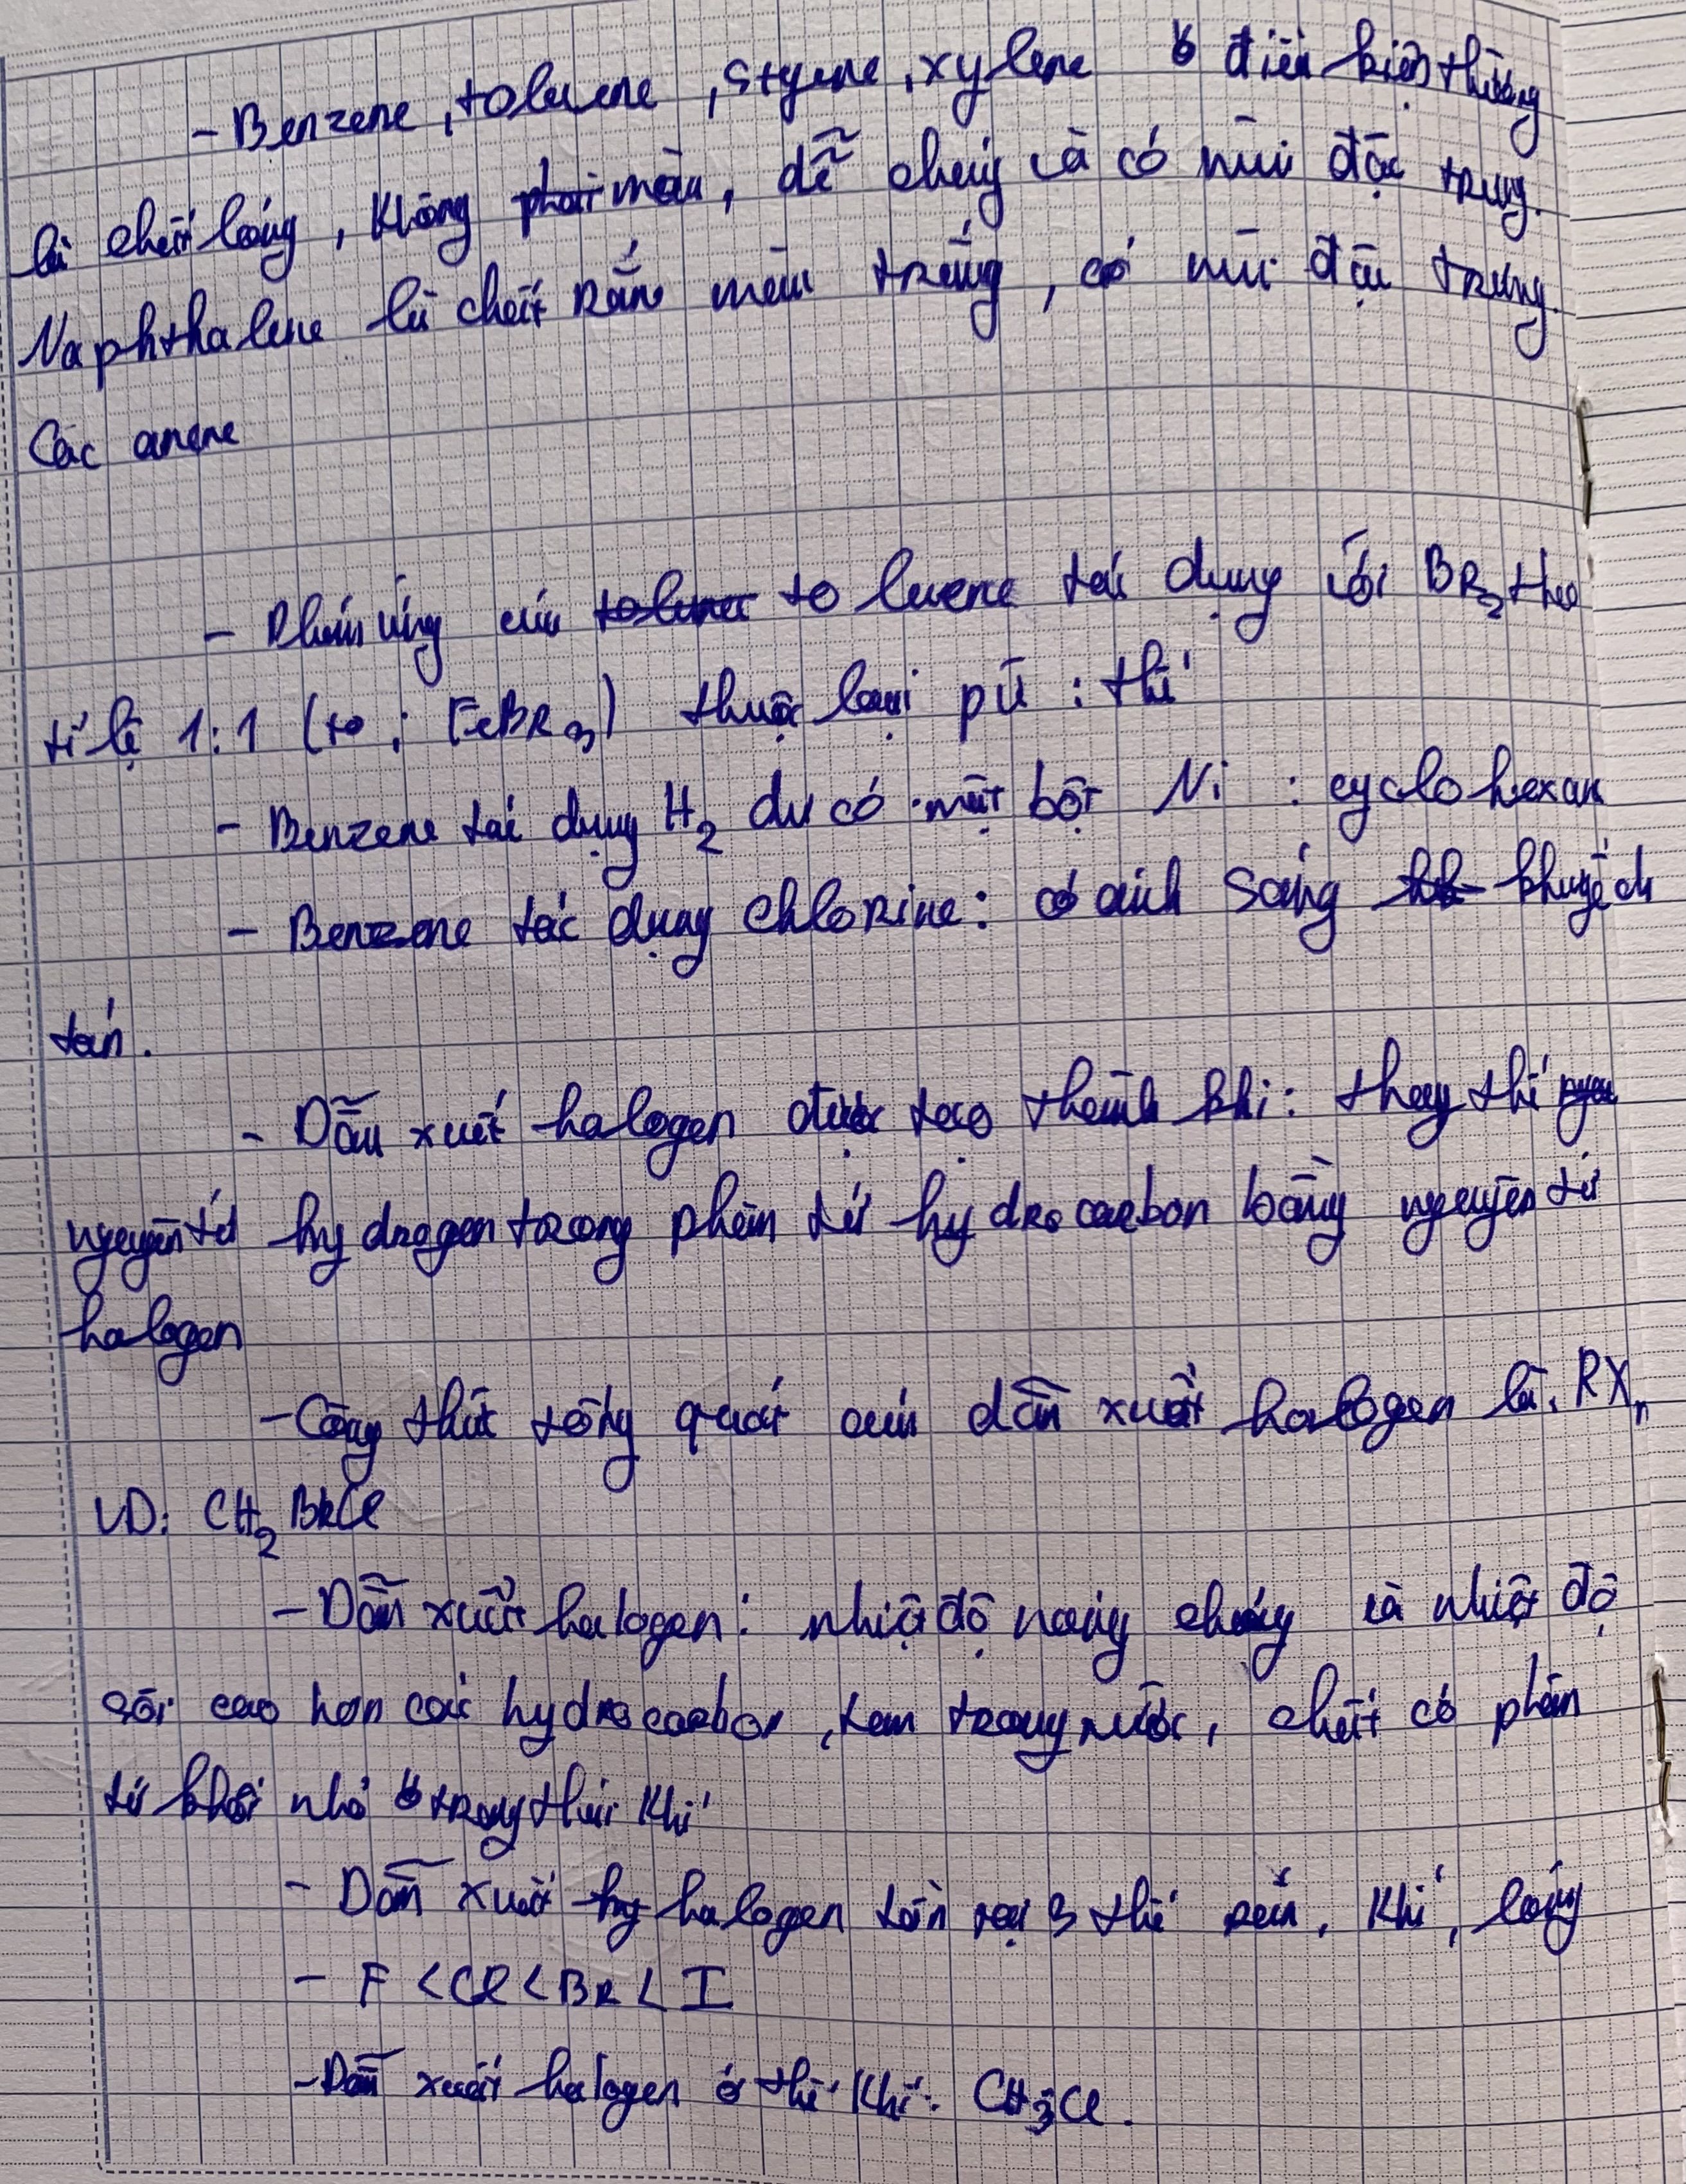 - Benzene, toluene, styene, xylene ở điều kiện thường
là chất lỏng, không phai màu, dễ cháy và có mùi đặc trưng.
Naphthalene là chất rắn màu trắng, có mùi đặc trưng.
Các arene
- Phản ứng của toluner toluene tác dụng với Br2 theo
tỉ lệ 1:1 (to; FeBr3) thuộc loại pứ: thế
- Benzene tác dụng H2 dư có mặt bột Ni: cyclohexan
- Benzene tác dụng chlorine: có ánh sáng khuyếch
tán.
- Dẫn xuất halogen được tạo thành khi: thay thế
nguyên tử hydrogen trong phân tử hydrocarbon bằng nguyên tử
halogen
- Công thức tổng quát của dẫn xuất halogen là: RXn
VD: CH2BrCl
- Dẫn xuất halogen: nhiệt độ nóng chảy và nhiệt độ
sôi cao hơn các hydrocarbon, tan trong nước, chất có phân
tử khối nhỏ ở trạng thái khí
- Dẫn xuất hy halogen tồn tại 3 thể rắn, khí, lỏng
- F < Cl < Br < I
- Dẫn xuất halogen ở thể khí: CH3Cl.